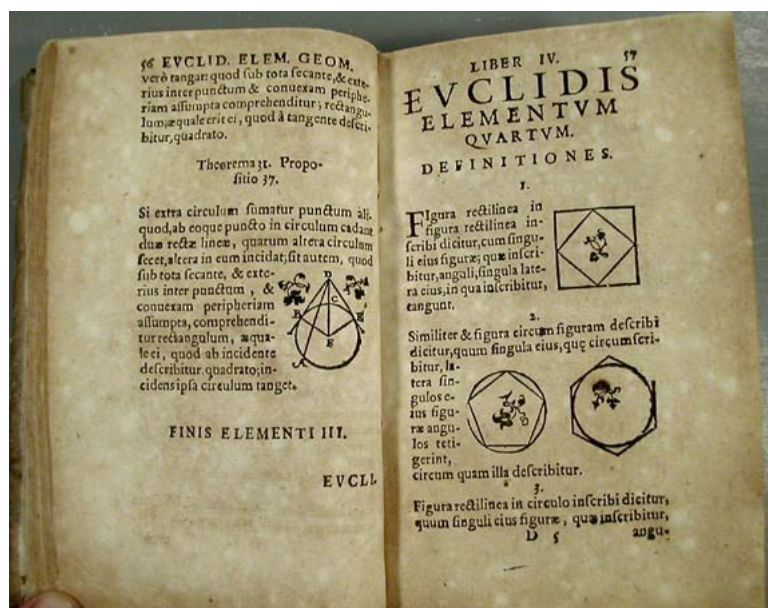 56 EVCLID. ELEM. GEOM.
verò tangat: quod sub tota secante, & exte-
rius inter punctum & conuexam periphe-
riam assumpta comprehenditur, rectangu-
lum, æquale erit ei, quod à tangente descri-
bitur, quadrato.
Theorema 31. Propo-
sitio 37.
Si extra circulum sumatur punctum ali-
quod, ab eoque puncto in circulum cadant
duæ rectæ lineæ, quarum altera circulum
secet, altera in eum incidat; sit autem, quod
sub tota secante, & exte-
rius inter punctum, &
conuexam peripheriam
assumpta, comprehendi-
tur rectangulum, æqua-
le ei, quod ab incidente
describitur quadrato; in-
cidens ipsa circulum tanget.
D
C
B
E
F
A
FINIS ELEMENTI III.
EVCLI.
LIBER IV. 57
EVCLIDIS
ELEMENTVM
QVARTVM.
DEFINITIONES.
1.
FIgura rectilinea in
figura rectilinea in-
scribi dicitur, cum singu-
li eius figuræ; quæ inscri-
bitur, anguli, singula late-
ra eius, in qua inscribitur,
tangunt.
2.
Similiter & figura circum figuram describi
dicitur, quum singula eius, quę circumscri-
bitur, la-
tera sin-
gulos e-
ius figu-
ræ angu-
los teti-
gerint,
circum quam illa describitur.
3.
Figura rectilinea in circulo inscribi dicitur,
quum singuli eius figuræ, quæ inscribitur,
D 5 angu-